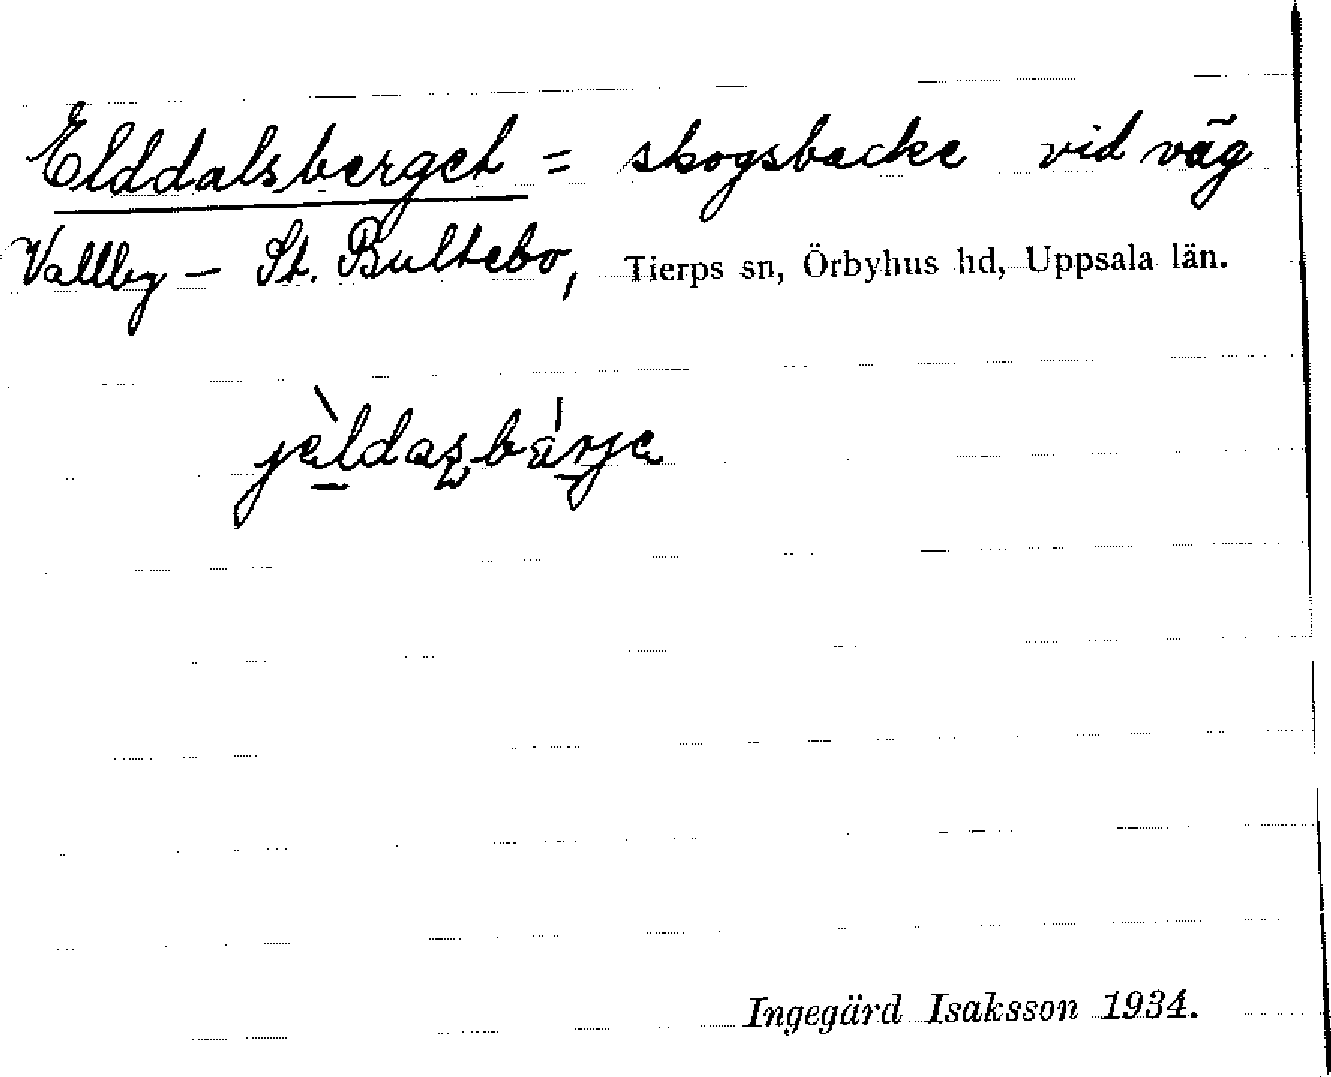 Elddalsberget = skogsbacke vid väg
Vallby – St. Bultebo, Tierps sn, Örbyhus hd, Uppsala län.
jèldasbárje
Ingegärd Isaksson 1934.